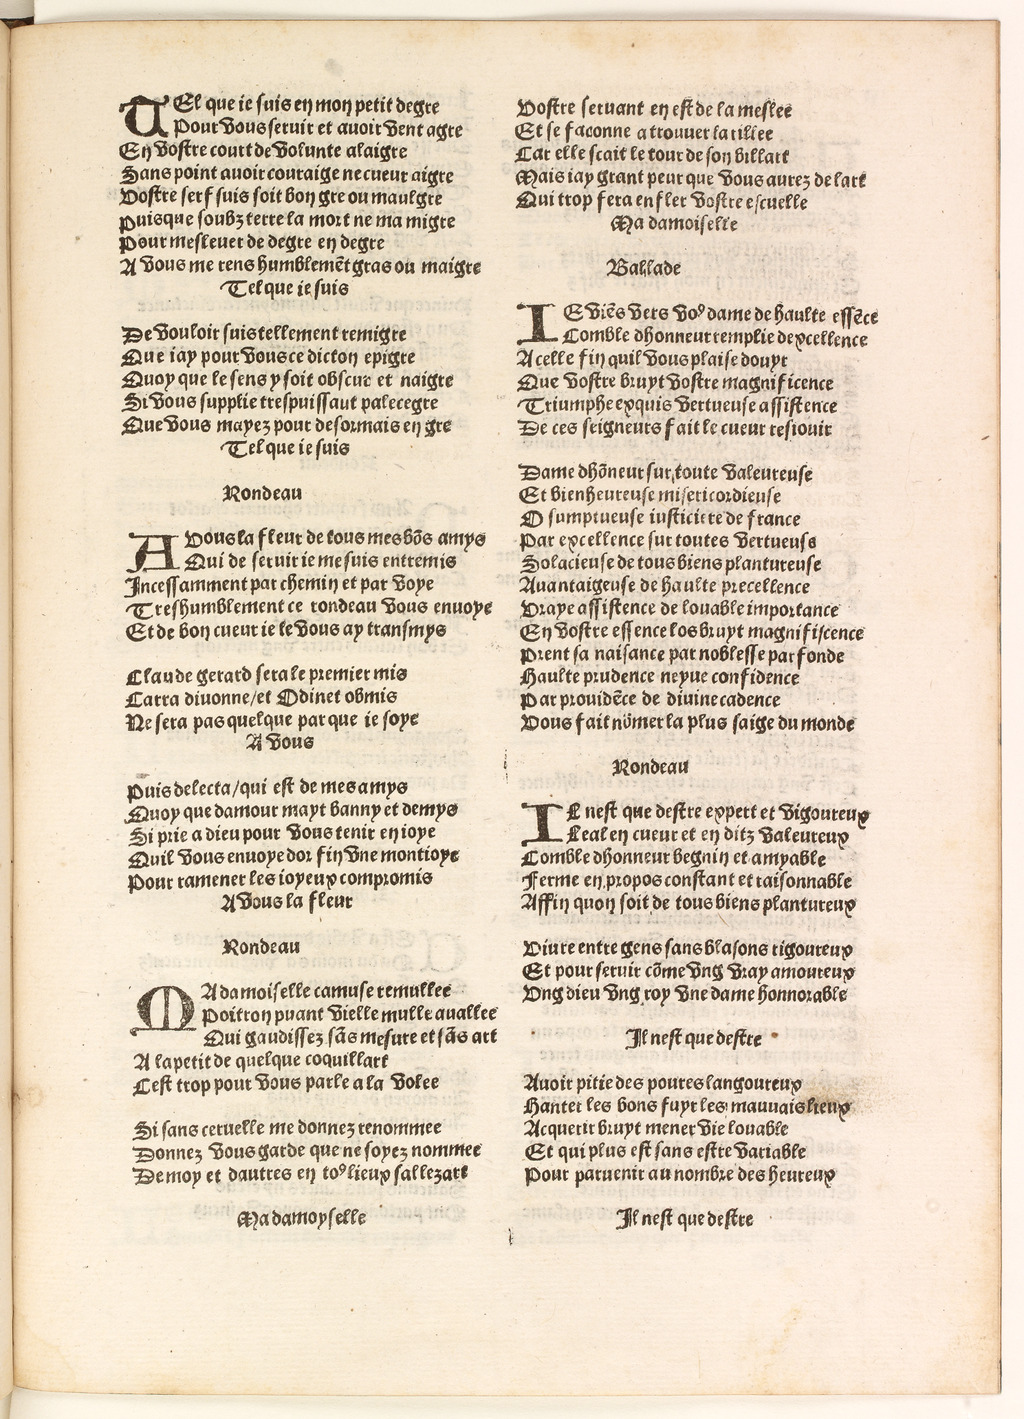 TEl que ie suis en mon petit degre
Pour vous seruir et auoir vent agre
En vostre court de volunte alaigre
Sans point auoir couraige ne cueur aigre
Vostre serf suis soit bon gre ou maulgre
Puisque soubz terre la mort ne ma migre
Pour mesleuer de degre en degre
A vous me rens humblemēt gras ou maigre
Tel que ie suis
De vouloir suis tellement remigre
Que iay pour vous ce dicton epigre
Quoy que le sens y soit obscur et naigre
Si vous supplie trespuissaut palecegre
Que vous mayez pour desormais en gre
Tel que ie suis
Rondeau
A Vous la fleur de tous mes bōs amys
Qui de seruir ie me suis entremis
Incessamment par chemin et par voye
Treshumblement ce rondeau vous enuoye
Et de bon cueur ie le vous ay transmys
Claude gerard sera le premier mis
Carra diuonne/et Odinet obmis
Ne sera pas quelque part que ie soye
A vous
Puis delecta/qui est de mes amys
Quoy que damour mayt banny et demys
Si prie a dieu pour vous tenir en ioye
Quil vous enuoye dor fin vne montioye
Pour ramener les ioyeux compromis
A vous la fleur
Rondeau
MAdamoiselle camuse remullee
Poitron puant vielle mulle auallee
Qui gaudissez sās mesure et sās art
A lapetit de quelque coquillart
Cest trop pour vous parle a la volee
Si sans ceruelle me donnez renommee
Donnez vous garde que ne soyez nommee
De moy et dautres en toꝰ lieux sallezart
Madamoyselle
Vostre seruant en est de la meslee
Et se faconne a trouuer la tillee
Car elle scait le tour de son billart
Mais iay grant peur que vous aurez de lart
Qui trop fera enfler vostre escuelle
Ma damoiselle
Ballade
IE viēs vers voꝰ dame de haulte essēce
Comble dhonneur remplie dexcellence
A celle fin quil vous plaise douyr
Que vostre bruyt vostre magnificence
Triumphe exquis vertueuse assistence
De ces seigneurs fait le cueur resiouir
Dame dhōneur sur toute valeureuse
Et bienheureuse misericordieuse
O sumptueuse iusticiere de france
Par excellence sur toutes vertueuse
Solacieuse de tous biens plantureuse
Auantaigeuse de haulte precellence
Vraye assistence de louable importance
En vostre essence los bruyt magnifiscence
Prent sa naisance par noblesse parfonde
Haulte prudence neyue confidence
Par prouidēce de diuine cadence
Vous fait nōmer la plus saige du monde
Rondeau
IL nest que destre expert et vigoureux
Leal en cueur et en ditz valeureux
Comble dhonneur begnin et amyable
Ferme en propos constant et raisonnable
Affin quon soit de tous biens plantureux
Viure entre gens sans blasons rigoureux
Et pour seruir cōme vng vray amoureux
Vng dieu vng roy vne dame honnorable
Il nest que destre
Auoir pitie des poures langoureux
Hanter les bons fuyr les mauuais lieux
Acquerir bruyt mener vie louable
Et qui plus est sans estre variable
Pour paruenir au nombre des heureux
Il nest que destre